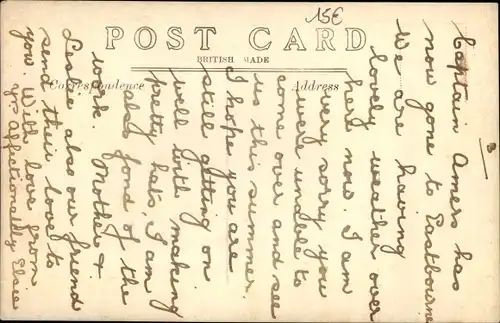 15€
POST CARD
BRITISH MADE
Correspondence
Address
Captain Amers has
now gone to Eastbourne
We are having
lovely weather over
here now. I am
very sorry you
were unable to
come over and see
us this summer.
I hope you are
still getting on
well with making
pretty hats, I am
also fond of the
work. Mother &
Leslie also our friend
send their love to
you. With love from
yr. Affectionately Elsie